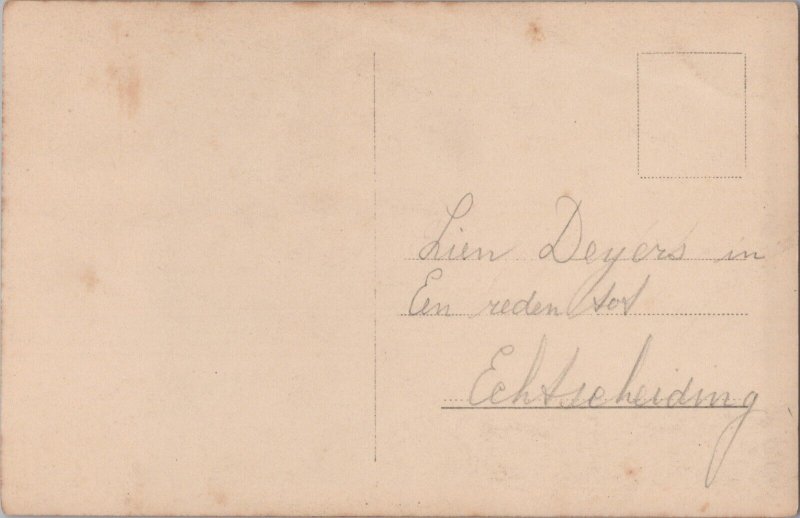 Lien Deyers in
Een reden tot
Echtscheiding